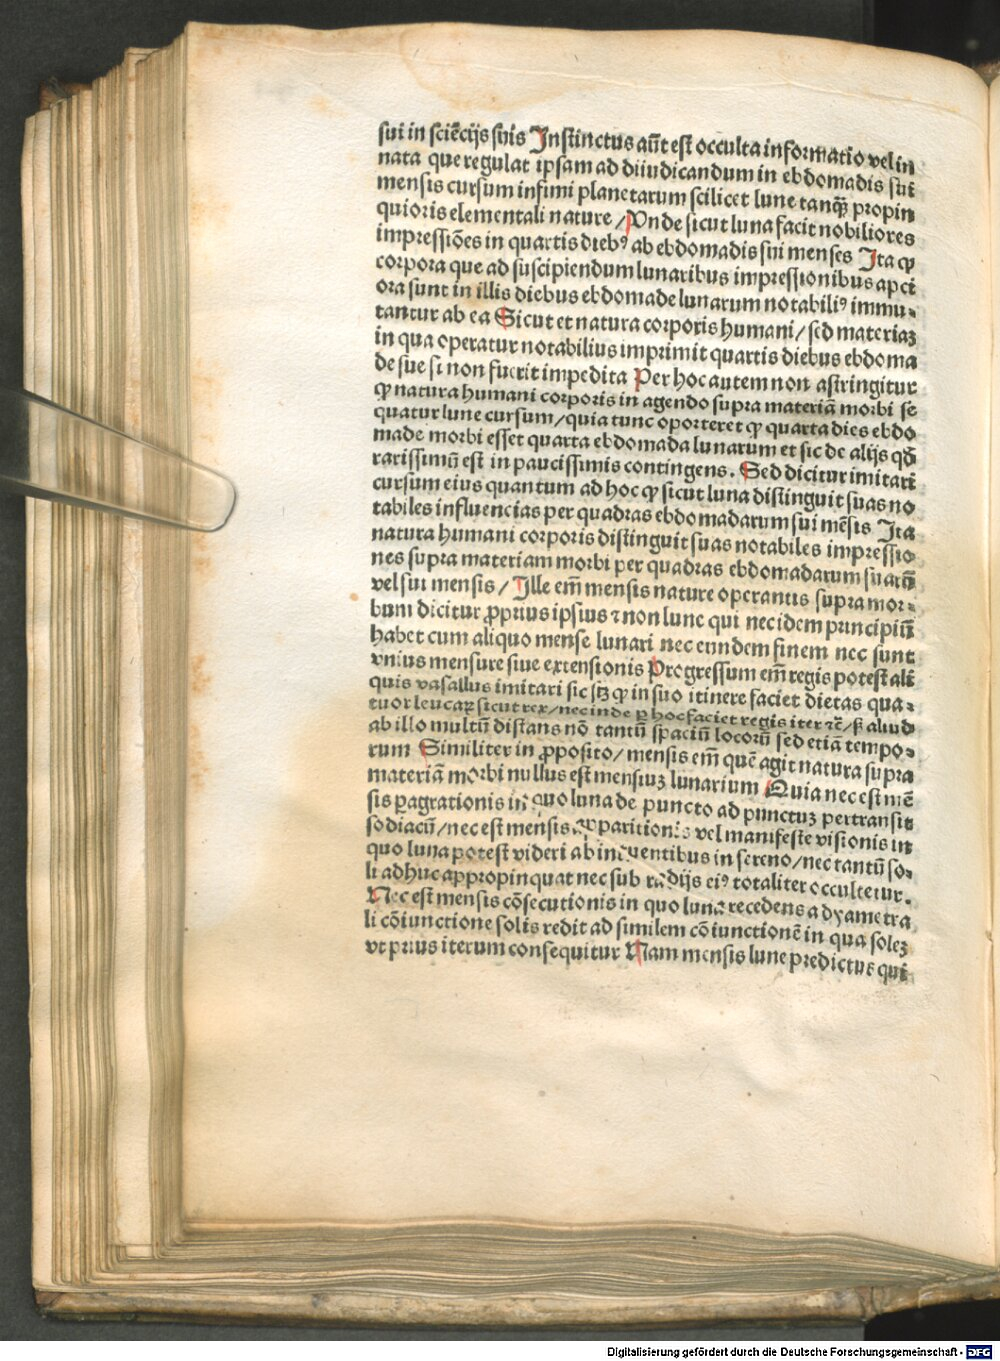 sui in sciēcijs suis Instinctus aūt est occulta informatio vel in
nata que regulat ipsam ad diiudicandum in ebdomadis sui
mensis cursum infimi planetarum scilicet lune tanq̄ꝫ propin
quioris elementali nature / Vnde sicut luna facit nobiliores
impressiōes in quartis diebꝰ ab ebdomadis sui menses Ita ꝙ
corpora que ad suscipiendum lunaribus impressionibus apci
ora sunt in illis diebus ebdomade lunarum notabiliꝰ immu⸗
tantur ab ea Sicut et natura corporis humani / sed materiaꝫ
in qua operatur notabilius imprimit quartis diebus ebdoma
de sue si non fuerit impedita Per hoc autem non astringitur
ꝙ natura humani corporis in agendo supra materiā morbi se
quatur lune cursum / quia tunc oporteret ꝙ quarta dies ebdo
made morbi esset quarta ebdomada lunarum et sic de alijs qđ
rarissimū est in paucissimis contingens. Sed dicitur imitari
cursum eius quantum ad hoc ꝙ sicut luna distinguit suas no
tabiles influencias per quadras ebdomadarum sui mēsis Ita
natura humani corporis distinguit suas notabiles impressio
nes supra materiam morbi per quadras ebdomadarum suarū
vel sui mensis / Ille em̄ mensis nature operantis supra mor⸗
bum dicitur ꝓprius ipsius ⁊ non lune qui nec idem principiū
habet cum aliquo mense lunari nec eundem finem nec sunt
vnius mensure siue extensionis Progressum em̄ regis potest ali
quis vasallus imitari sic sꝫ ꝙ in suo itinere faciet dietas qua⸗
tuor leucaꝝ sicut rex / nec inde ꝑ hoc faciet regis iter ⁊c̄ / sꝫ aliud
ab illo multū distans nō tantū spaciū locorū sed etiā tempo⸗
rum Similiter in ꝓposito / mensis em̄ quē agit natura supra
materiā morbi nullus est mensiuꝫ lunarium Quia nec est mē
sis ꝑagrationis in quo luna de puncto ad punctuꝫ pertransit
sodiacū / nec est mensis apparitionis vel manifeste visionis in
quo luna potest videri ab intuentibus in sereno / nec tantū so⸗
li adhuc appropinquat nec sub radijs eiꝰ totaliter occultetur.
Nec est mensis cōsecutionis in quo luna recedens a dyametra
li cōiunctione solis redit ad similem cōiunctionē in qua soleꝫ
vt prius iterum consequitur Nam mensis lune predictus qui
Digitalisierung gefördert durch die Deutsche Forschungsgemeinschaft - DFG